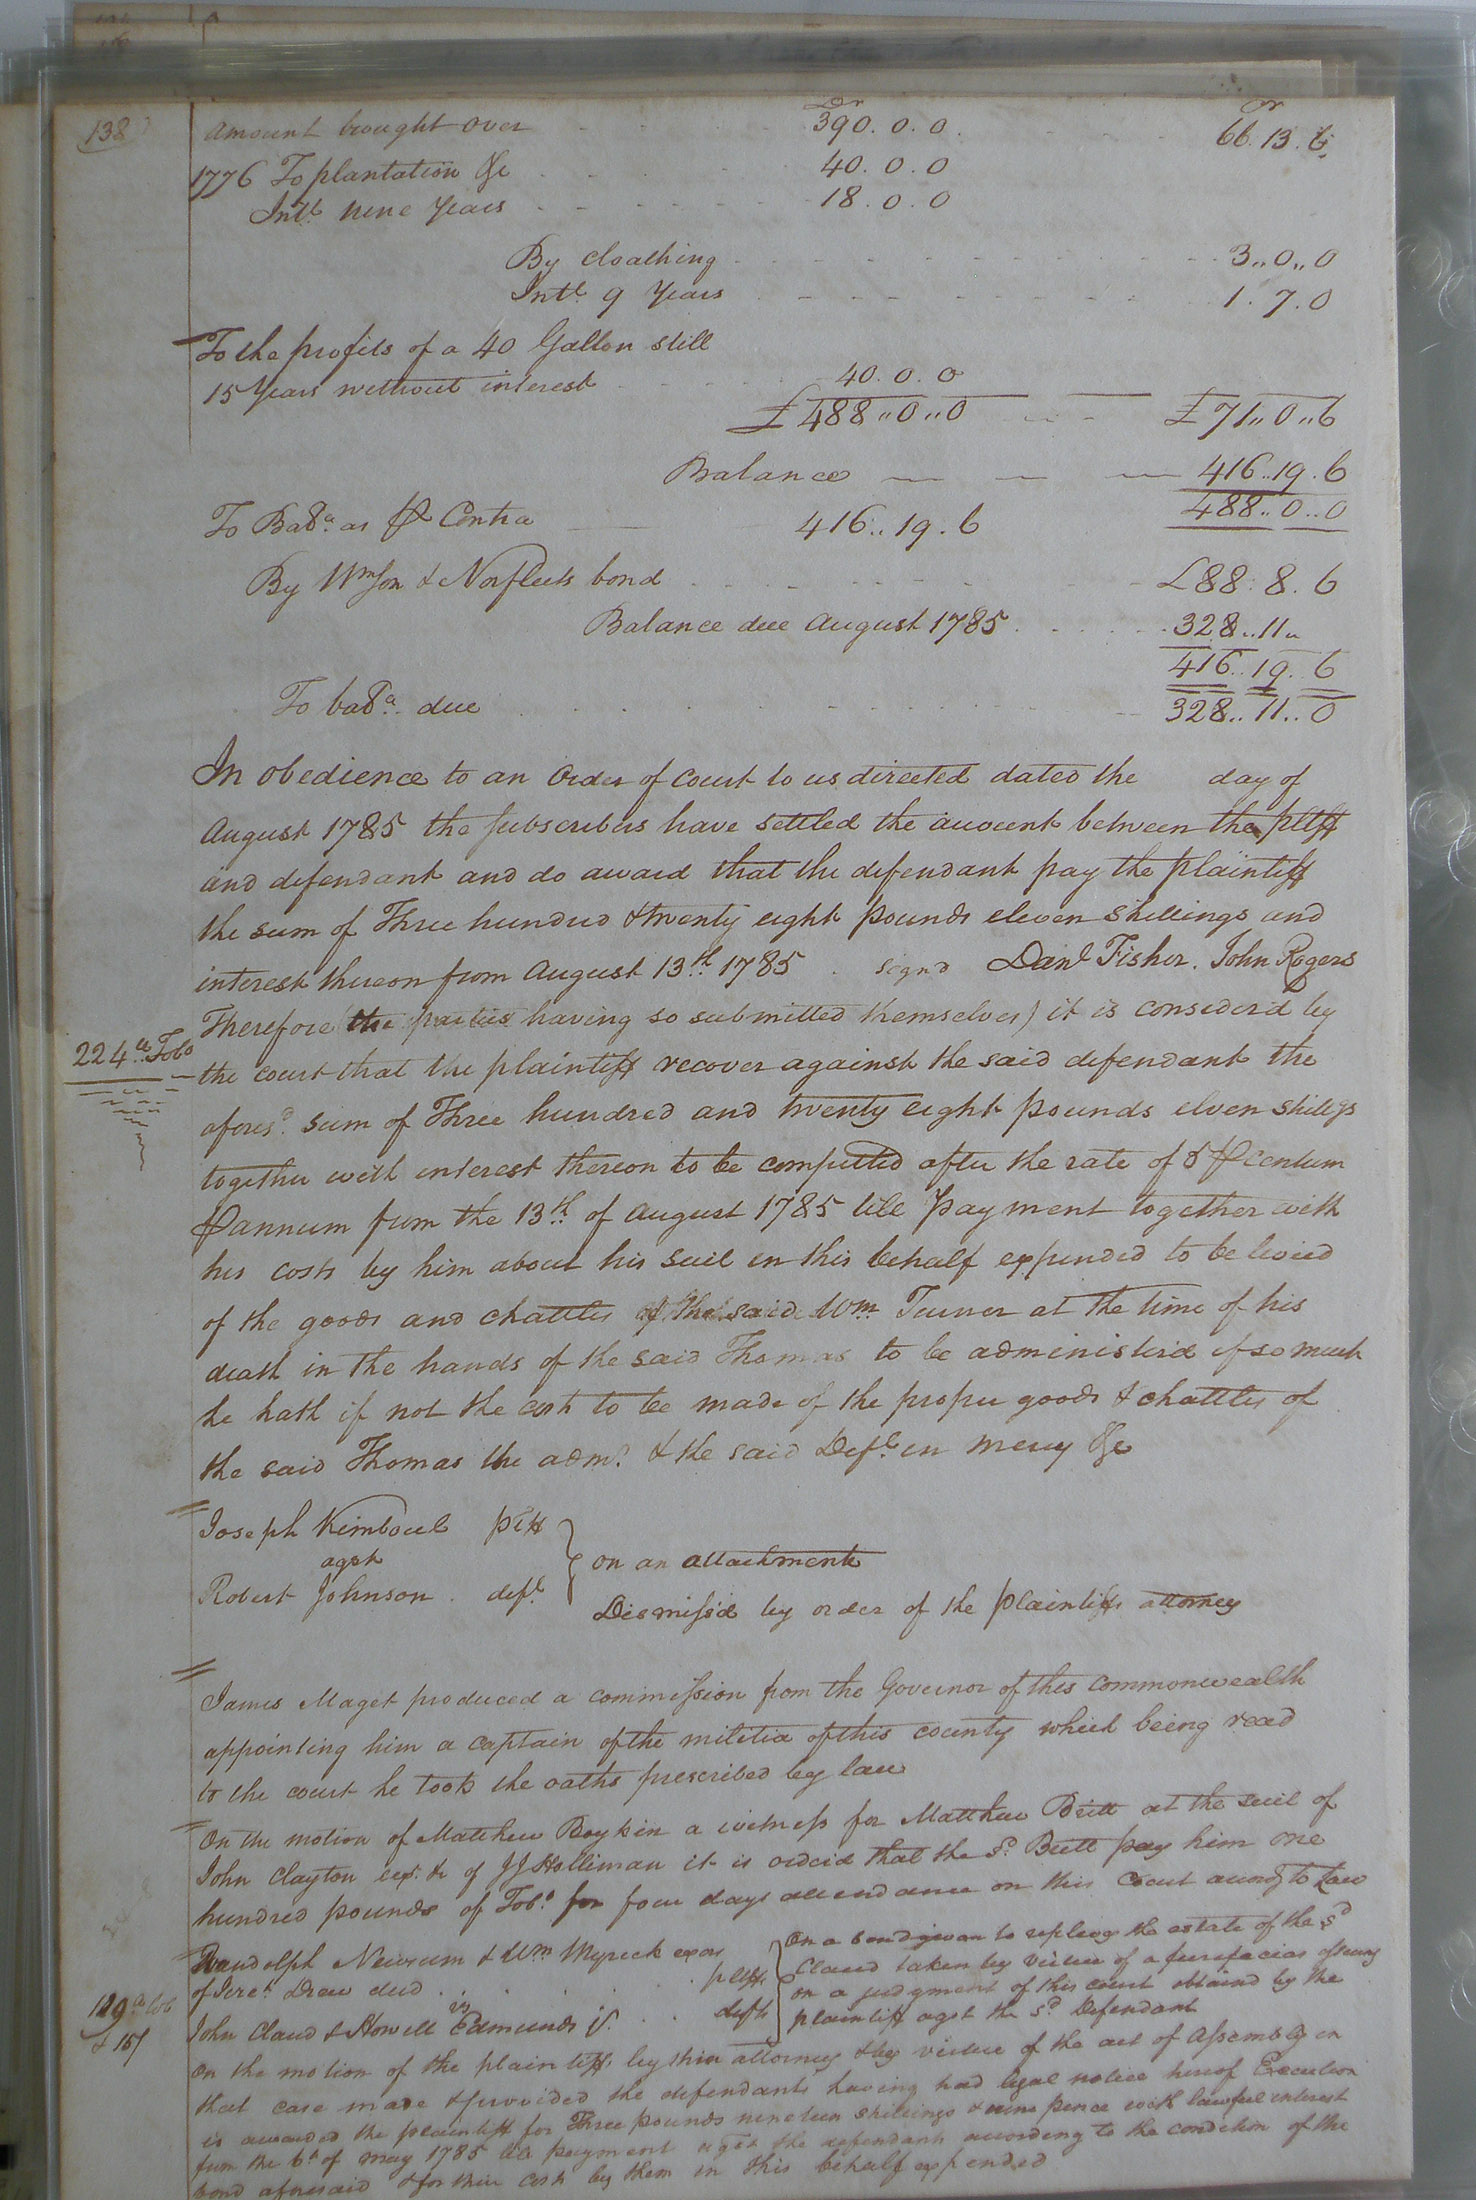 138
Dr Cr
Amount brought over 390. 0. 0 66. 13. 6
1776 To plantation &c 40. 0. 0
Intt. nine Years 18. 0. 0
By cloathing 3,, 0,, 0
Intt. 9 Years 1. 7. 0
To the profits of a 40 Gallon still
15 Years without interest 40. 0. 0
£ 488 ,, 0 ,, 0 £ 71,, 0 ,, 6
Balance 416.. 19. 6
488.. 0.. 0
To Bala. as ⅌ Contra 416.. 19. 6
By Wmson & Norfleets bond £88: 8. 6
Balance due August 1785 328.. 11 ,,
416.. 19. 6
To bala. due 328.. 11.. 0
In obedience to an Order of Court to us directed dated the day of
August 1785 the subscribers have settled the account between the pltff
and defendant and do award that the defendant pay the plaintiff
the sum of Three hundred & twenty eight pounds eleven shillings and
interest thereon from August 13th. 1785. signd Danl Fisher. John Rogers
Therefore (the parties having so submitted themselves) it is considerd by
224 Tobo
the court that the plaintiff recover against the said defendant the
aforesd. sum of Three hundred and twenty eight pounds elven shillgs
together with interest thereon to be computed after the rate of 5 ⅌ centum
⅌ annum from the 13th. of August 1785 till payment together with
his costs by him about his suit in this behalf expended to be levied
of the goods and chattles of the said Wm. Turner at the time of his
death in the hands of the said Thomas to be administerd if so much
he hath if not the costs to be made of the proper goods & chattles of
the said Thomas the admr. & the said Deft. in mercy &c
Joseph Kimboul pltf
agst
Robert Johnson deft.
on an attachment
Dismiss'd by order of the plaintiffs attorney
James Maget produced a commission from the Governor of this commonwealth
appointing him a captain of the militia of this county which being read
to the court he took the oaths prescribed by law
On the motion of Matthew Boykin a witness for Matthew Britt at the suit of
John Clayton exr. &c of JJ Holliman it is orderd that the sd. Britt pay him one
hundred pounds of Tobo. for four days attendance on this Court accordg to Law
Randolph Newsum & Wm Myrick exors
of Jere. Drew decd pltffs
vs
John Claud & Howell Edmunds jr. defts
On a bond given to replevy the estate of the sd
Claud taken by virtue of a fierefacias
on a judgment of this court obtaind by the
plaintiff agst the sd. Defendant
& 15/
On the motion of the plaintiffs by their attorney & by virtue of the act of Assembly in
that case made & provided the defendants having had legal notice hereof Execution
is awarded the plaintiff for Three pounds nineteen shillings & nine pence with lawful interest
from the 6th of may 1785 till payment agst the defendants according to the condition of the
bond aforesaid & for their costs by them in this behalf expended